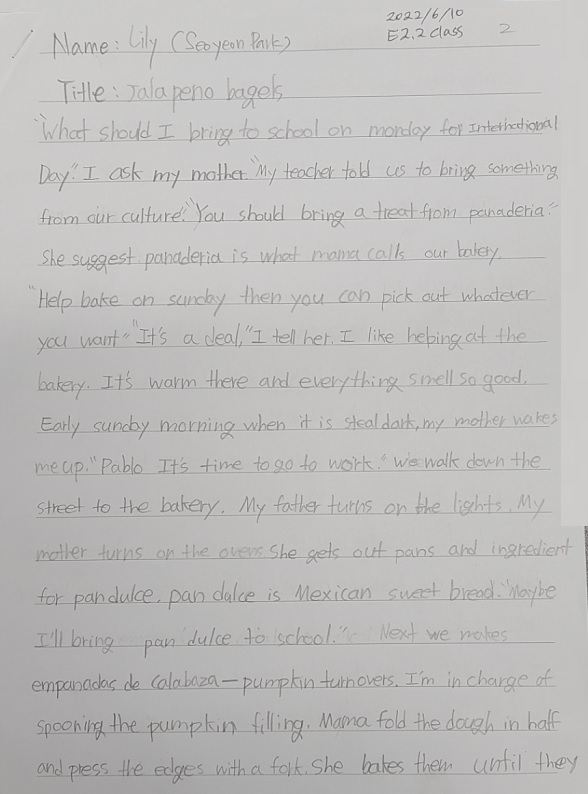 2022/6/10
E2.2 class 2
Name: Lily (Seoyeon Park)
Title: Jalapeno bagels
"What should I bring to school on monday for International
Day." I ask my mother. "My teacher told us to bring something
from our culture." "You should bring a treat from panaderia."
She suggest panaderia is what mama calls our bakery.
"Help bake on sunday then you can pick out whatever
you want" "It's a deal," I tell her. I like heping at the
bakery. It's warm there and everything smell so good.
Early sunday morning when it is steal dark, my mother wakes
me up. "Pablo It's time to go to work." We walk down the
street to the bakery. My father turns on the lights. My
mother turns on the ovens She gets out pans and ingredient
for pandulce. pan dulce is Mexican sweet bread. "Maybe
I'll bring pan dulce to school." Next we makes
empanadas de calabaza—pumpkin turnovers. I'm in charge of
spooning the pumpkin filling. Mama fold the dough in half
and press the edges with a fork. She bakes them until they